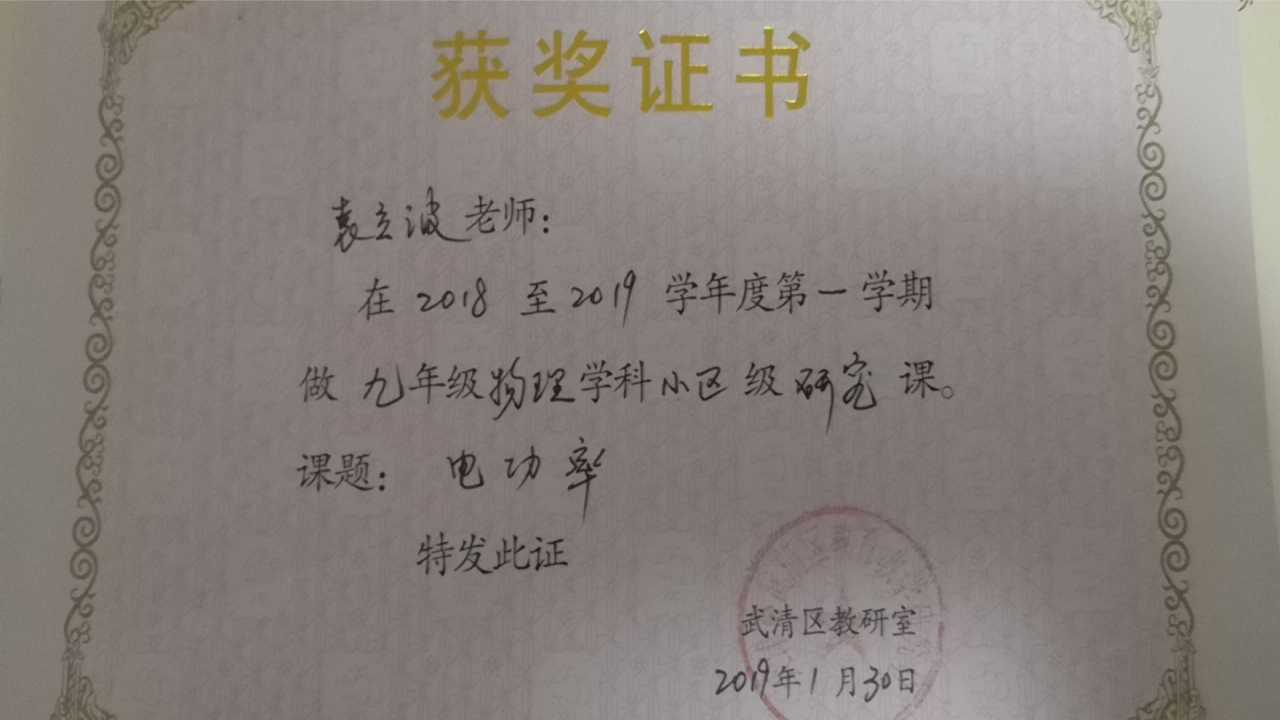 获奖证书
袁立波老师：
在 2018 至 2019 学年度第一学期
做 九年级物理学科小区级研究 课。
课题： 电功率
特发此证
武清区教研室
2019年1月30日